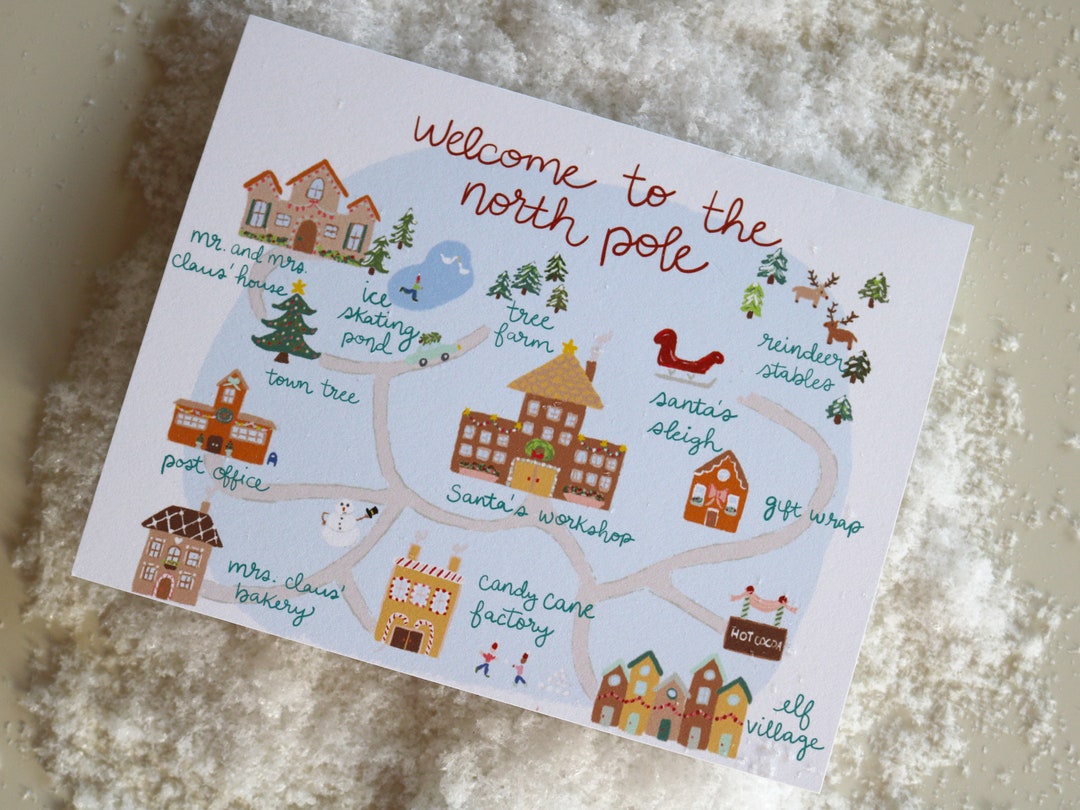 welcome to the
north pole
mr. and mrs.
claus' house
ice
skating
pond
tree
farm
reindeer
stables
town tree
santa's
sleigh
post office
Santa's workshop
gift wrap
mrs. claus'
bakery
candy cane
factory
HOT COCOA
elf
village